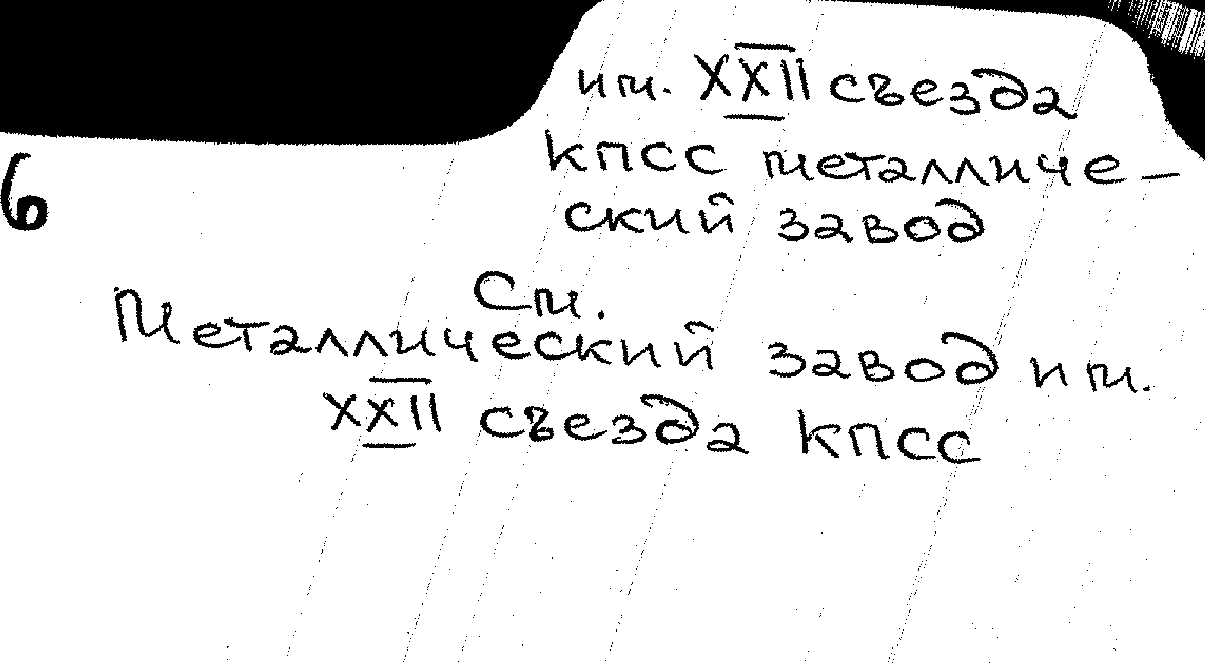 им. XXII съезда
КПСС металличе-
ский завод
6
См.
Металлический завод им.
XXII съезда КПСС